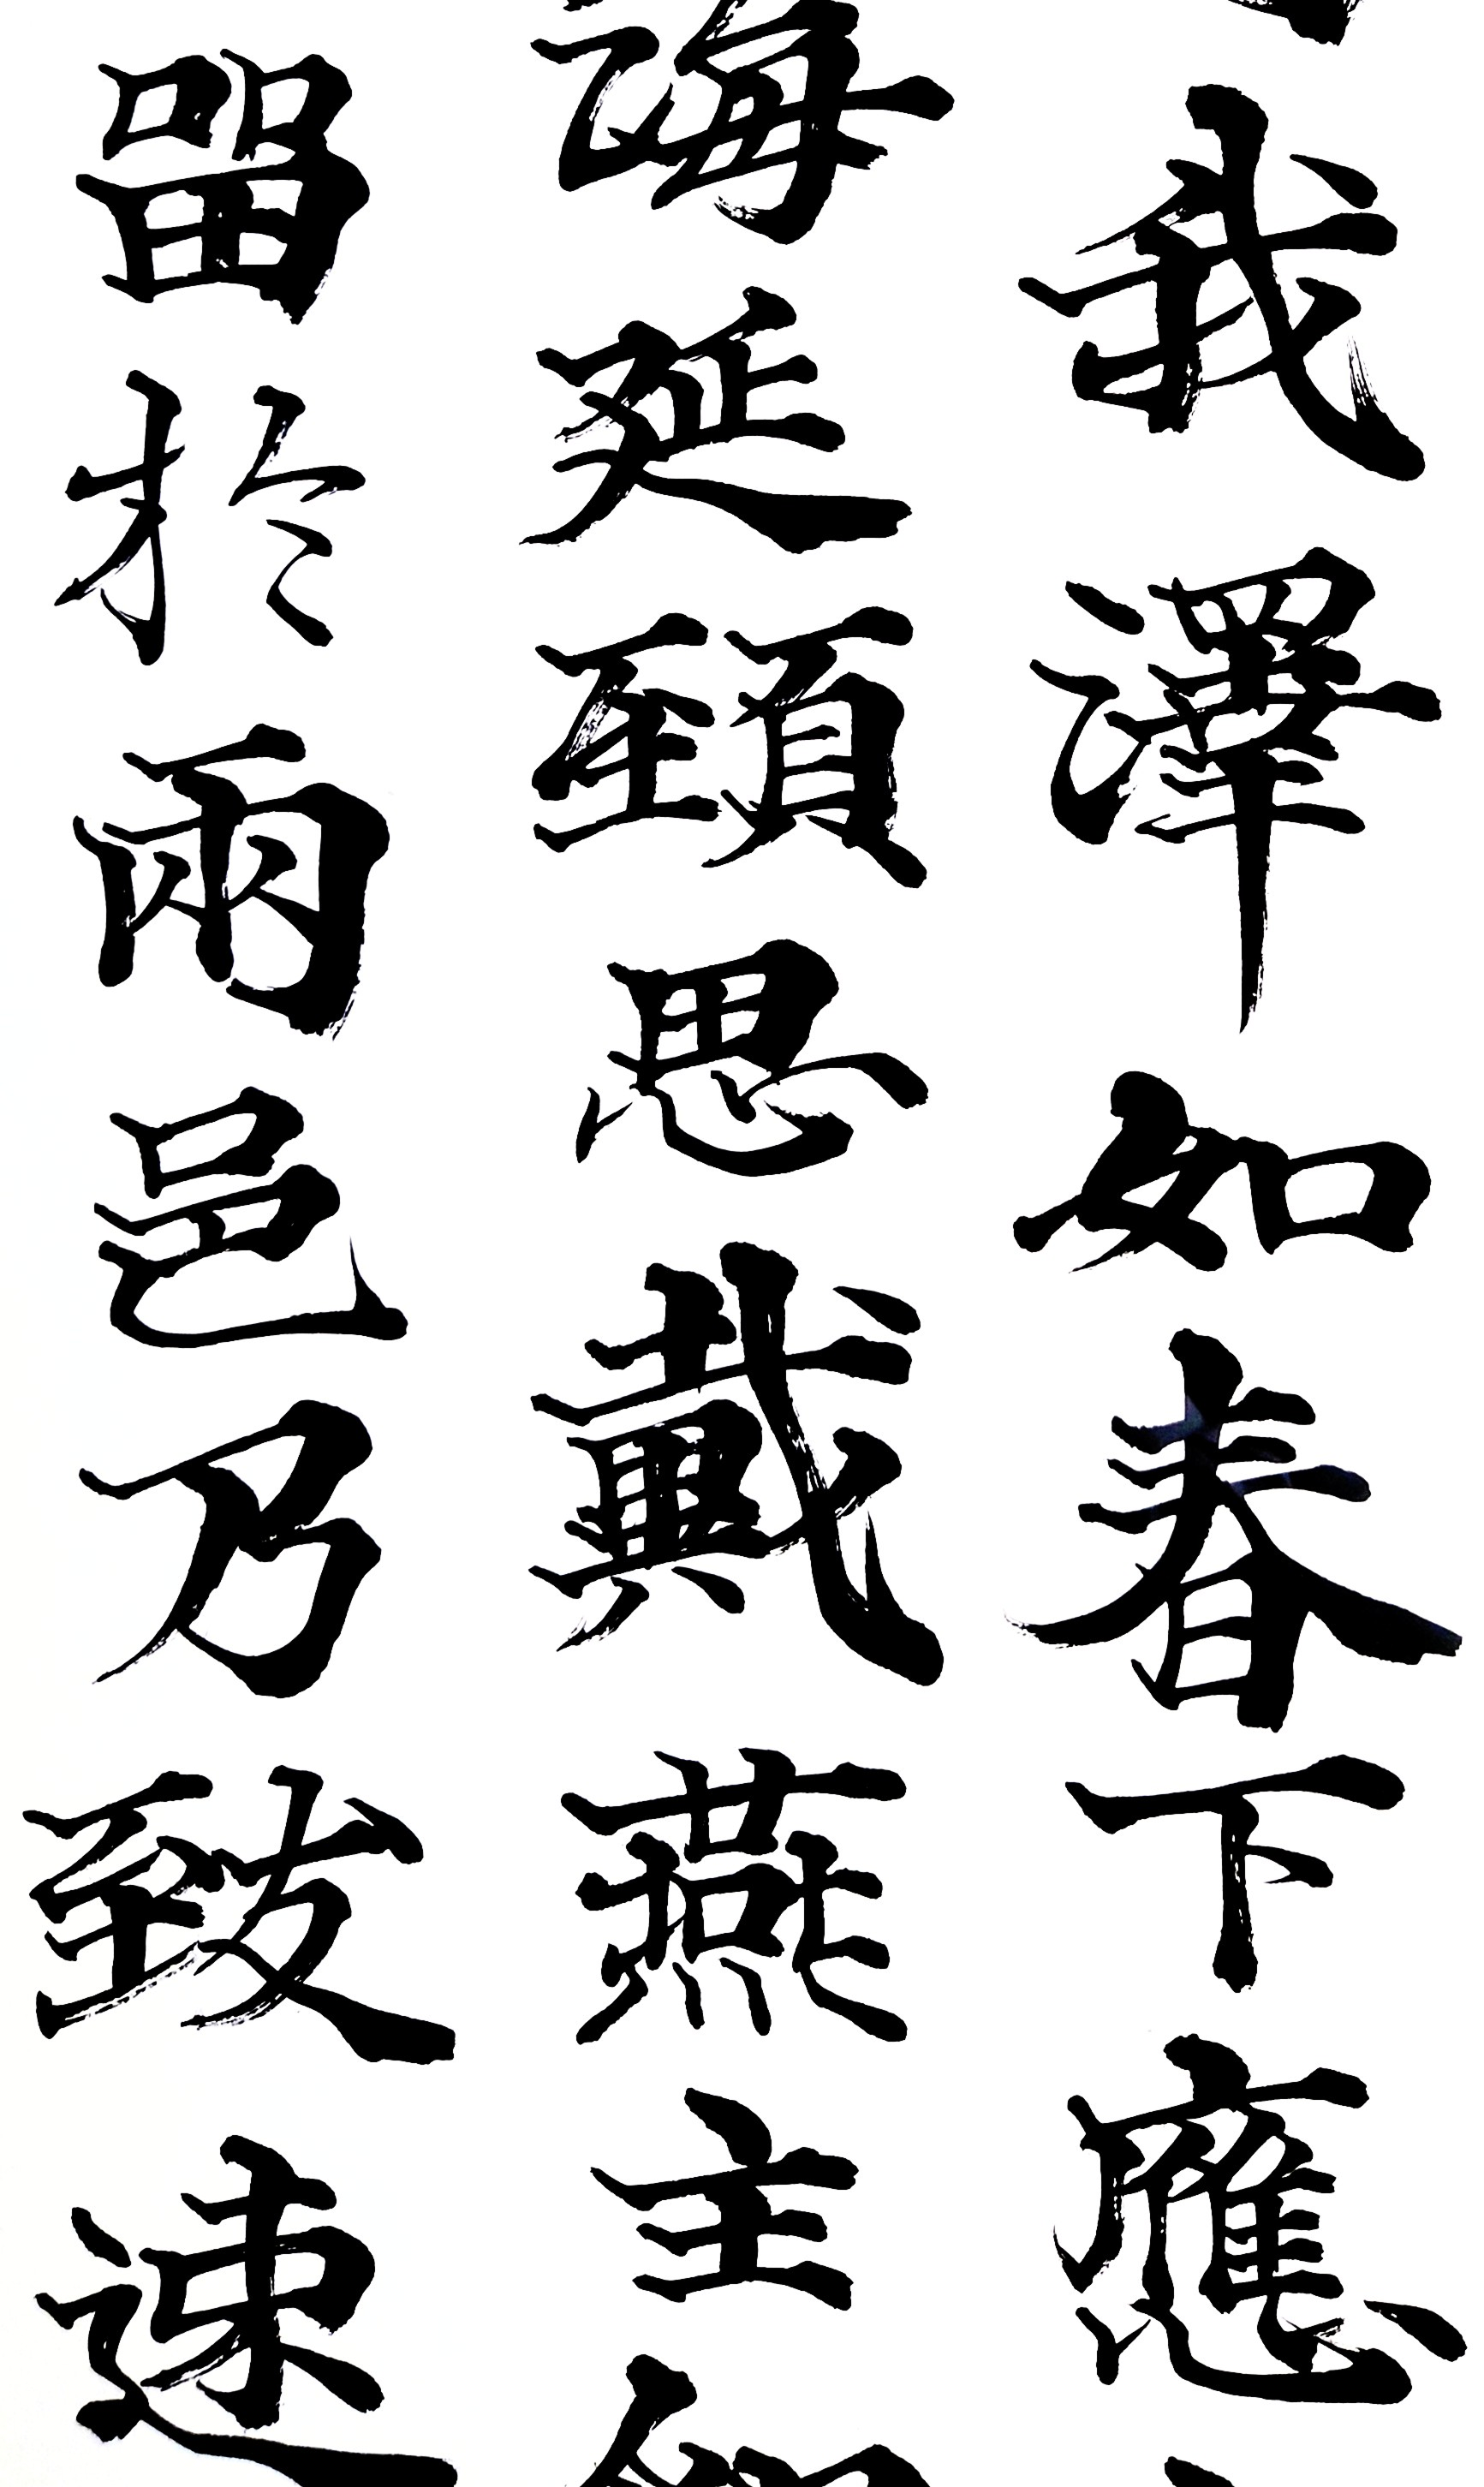 我澤如春下應
海延頸思戴燕主
留於兩邑乃致速